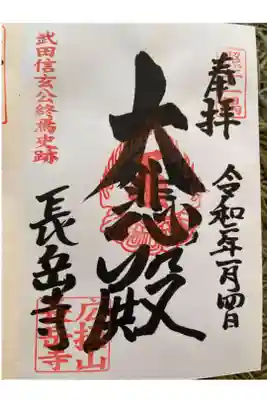 奉拝
令和二年一月四日
大悲殿
武田信玄公終焉史跡
長岳寺
広拯山
長岳寺